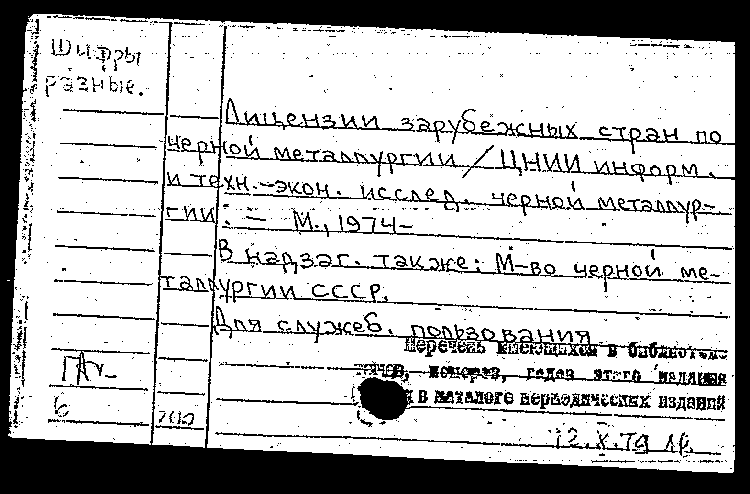 Шифры
разные.
Лицензии зарубежных стран по
черной металлургии / ЦНИИ информ.
и техн.-экон. исслед. черной металлур-
гии. - М., 1974-
В надзаг. также: М-во черной ме-
таллургии СССР.
Для служеб. пользования
Перечень имеющихся в библиотеке
номеров, годов этого издания
в каталоге периодических изданий
6
12.X.79